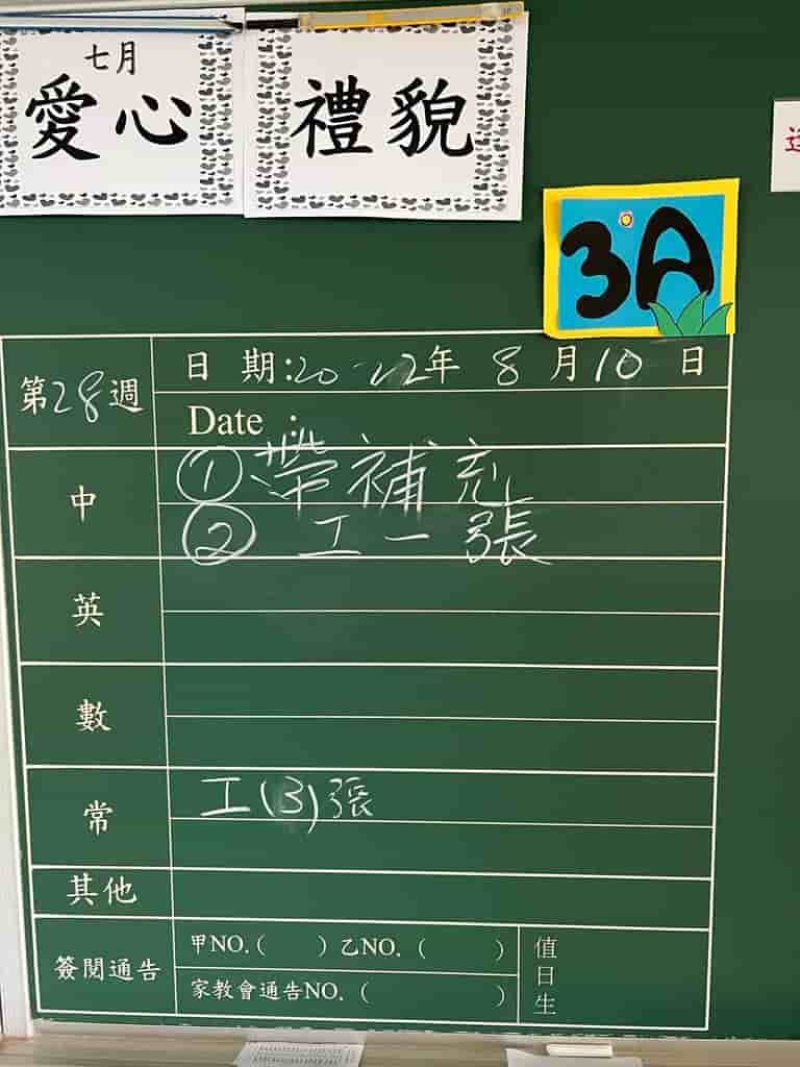 七月
愛心
禮貌
3A
第28週
日 期:2022年 8 月10 日
Date :
中
①帶補充
② 工一張
英
數
常
工(3)張
其他
簽閱通告
甲NO.( )乙NO.( )
家教會通告NO.( )
值日生